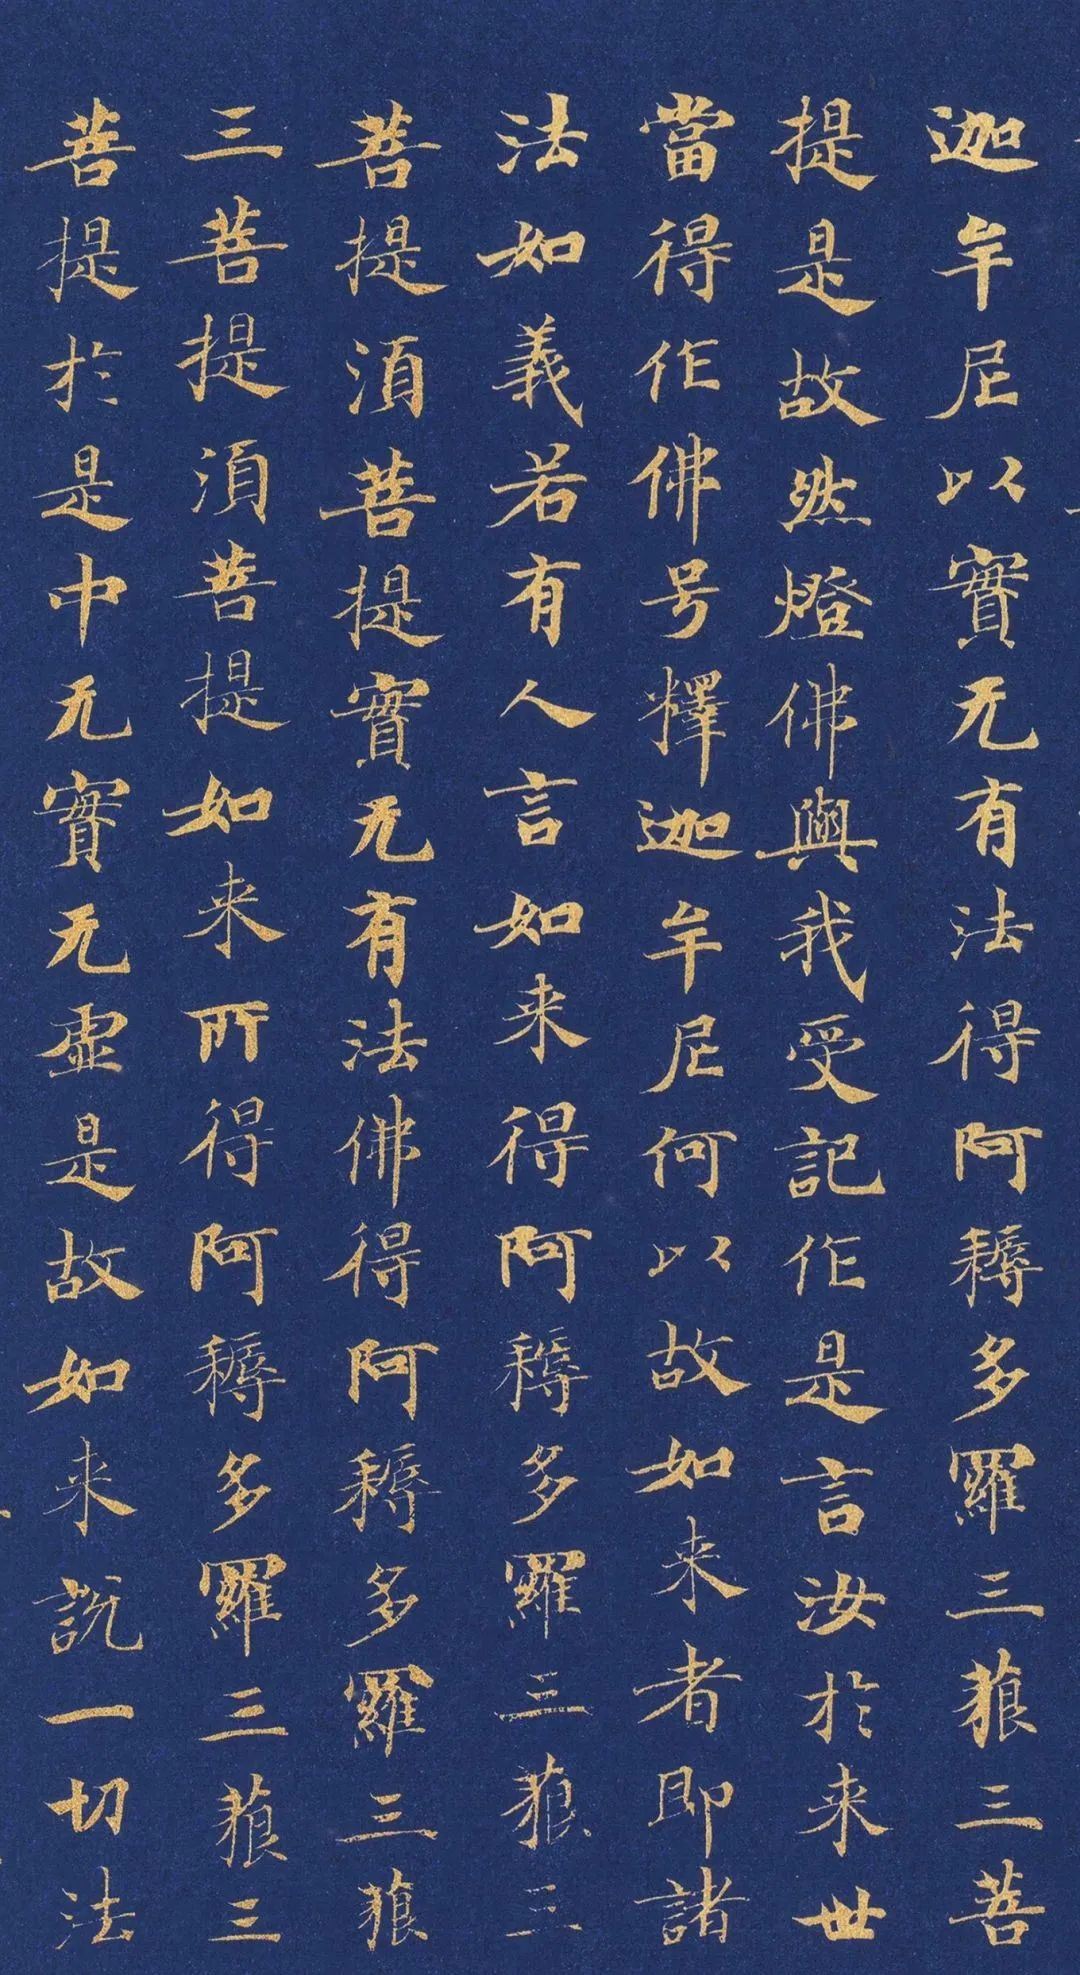 迦牟尼以實无有法得阿耨多羅三藐三菩
提是故然燈佛與我受記作是言汝於来世
當得作佛号釋迦牟尼何以故如来者即諸
法如義若有人言如来得阿耨多羅三藐三
菩提湏菩提實无有法佛得阿耨多羅三藐
三菩提湏菩提如来所得阿耨多羅三藐三
菩提於是中无實无虛是故如来說一切法